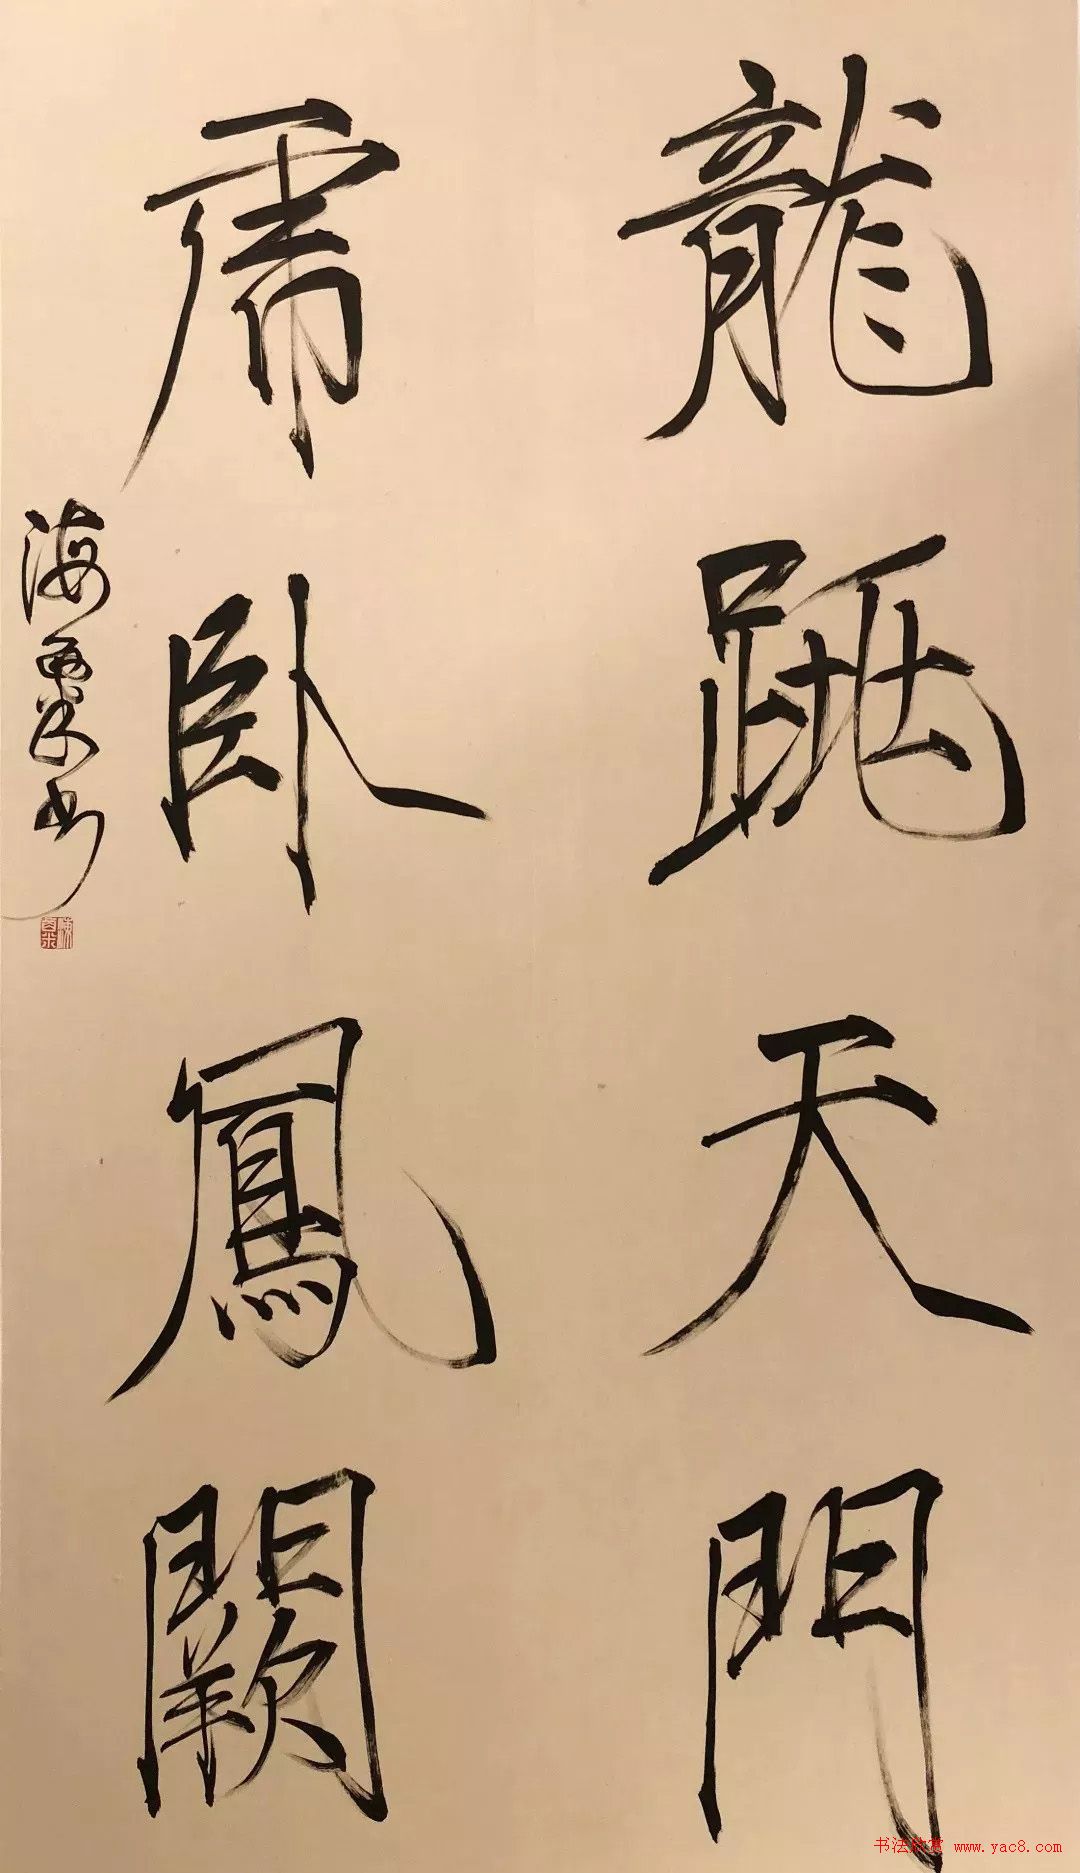 龍跳天門
虎卧鳳闕
海粟书
书法欣赏 www.yac8.com